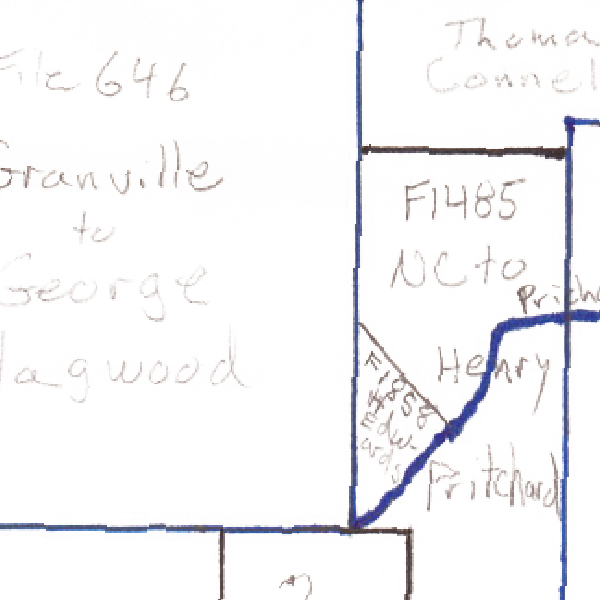 File 646
Granville
to
George
Hagwood
Thomas
Connel
F1485
NC to
Henry
Pritchard
Pricha
F1858
Edw-
ards
?